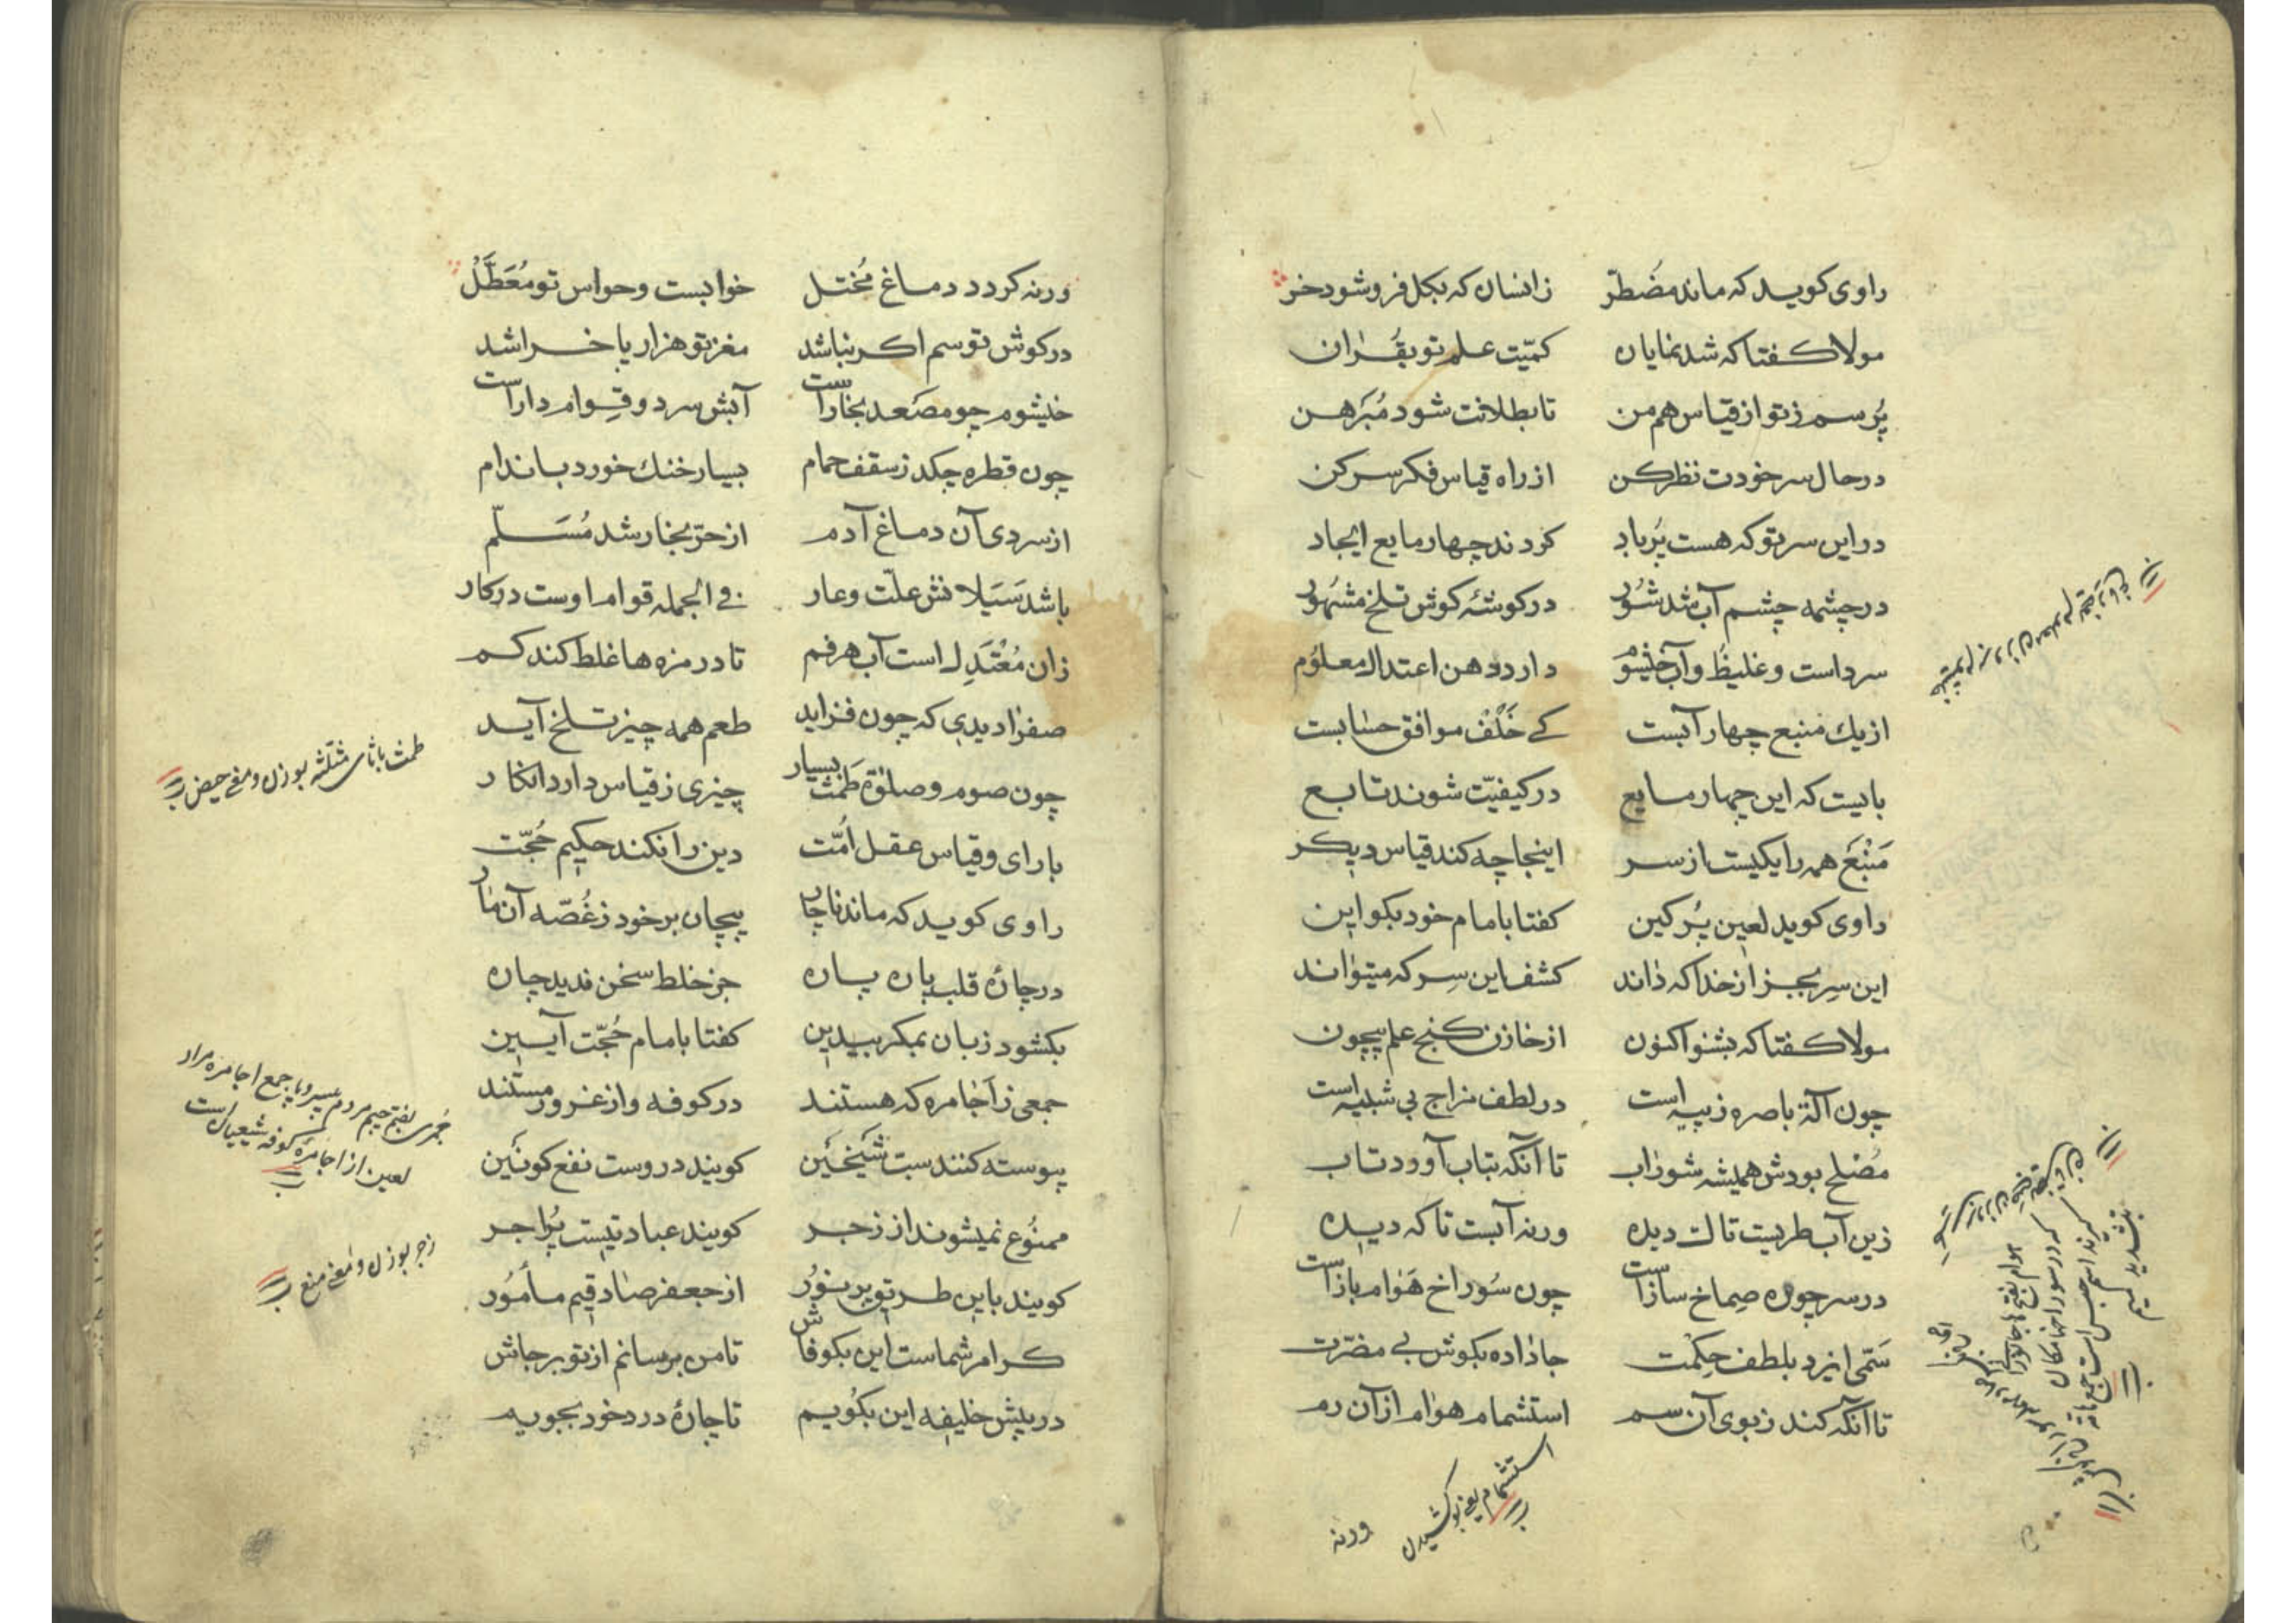 راوی کوید که ماند مضطرّ زانسان که بکل فرو شود خر
مولا کفتا که شد نمایان کمیّت علم تو بقُرٰان
پُرسم ز تو از قیاس هم من تا بطلانت شود مُبَرهن
در حال سر خودت نظر کن از راه قیاس فکر سر کن
در این سر تو که هست پُر باد کردند چهار مایع ایجاد
در چشمه چشم آب شد شُور در کوشهٔ کوش تلخ مشهُور
سرد است و غلیظ و آب خیشوم دارد دهن اعتدال معلوُم
از یك منبع چهار آبست کے خَلْف موافق حسٰابست
بایست که این چهار مایع در کیفیّت شوند تابع
مَنْبَع همه را یکیست از سر اینجا چه کند قیاس دیکر
راوی کوید لعین پُر کین کفتا با مام خود بکو این
این سِر بجز از خدا که دٰاند کشف این سِر که میتوٰاند
مولا کفتا که بشنو اکنون از خازن کنج علم بیچون
چون آلة باصره ز پیه است در لطف مزاج بی شبیه است
مُصْلح بودش همیشه شورٰاب تا آنکه بتاب آوود تاب
زین آب طریست تا لت دیده ورنه آبست تا که دیده
در سر چو ره صِماخ ساز است چون سُوراخ هَوٰام باز است
سَمّی ایزد بلطف حِکْمت جا دٰاده بکوش بے مضرّت
تا آنکه کند ز بوی آن سم استشمام هوٰام از آن رم
استشمام یعنی بو کشیدن
ورنه
ورنه کردد دماغ مُختل خوابست و حواس تو مُعَطَّلْ
در کوش تو سم اکر نباشد مغز تو هزار پا خراشد
خیشوم چو مصَعد بخار است آبش سرد و قِوام دار است
چون قطره چکد ز سقف حمام بسیار خنك خورد باندام
از سردی آن دماغ آدم از حرّ بخار شد مُسَلّم
باشد سَیَلانش علّت و عار فی الجمله قوام اوست در کار
زان مُعْتَدِل است آب هر فم تا در مزه ها غلط کند کم
صفرٰا دیدی که چون فزاید طعم همه چیز تلخ آید
چون صوم و صلٰوة طَمْث بسیار چیزی ز قیاس دارد انکار
با رای و قیاس عقل اُمّت دین را نکند حکیم حُجّت
راوی کوید که ماند ناچار پیچان بر خود ز غُصّه آن مٰار
در چارهٔ قلب پاره پاره جز خلط سخن ندید چاره
بکشود زبان بمکر بیدین کفتا با مام حُجّت آیین
جمعی ز اَجٰامره که هستند در کوفه و از غرور مستند
پیوسته کنند سبّ شَیْخَیْن کویند در وست نفع کونَیْن
ممنُوع نمیشوند از زجر کویند عبادتیست پُر اجر
کویند باین طریق پر نوُر از جعفر صٰادقیم مأمُور
کر امر شماست این بکو فاش تا من برسانم از تو بر جاش
در پیش خلیفه این بکوُیم تا چارهٔ درد خود بجویم
طمث با ثای مثلّثه بوزن و معنی حیض
جُمری بضم جیم مردم بی سر و پا جمع اجامره مراد
لعین از اجامرهٔ کوفه شیعیان است
زجر بوزن و معنی منع